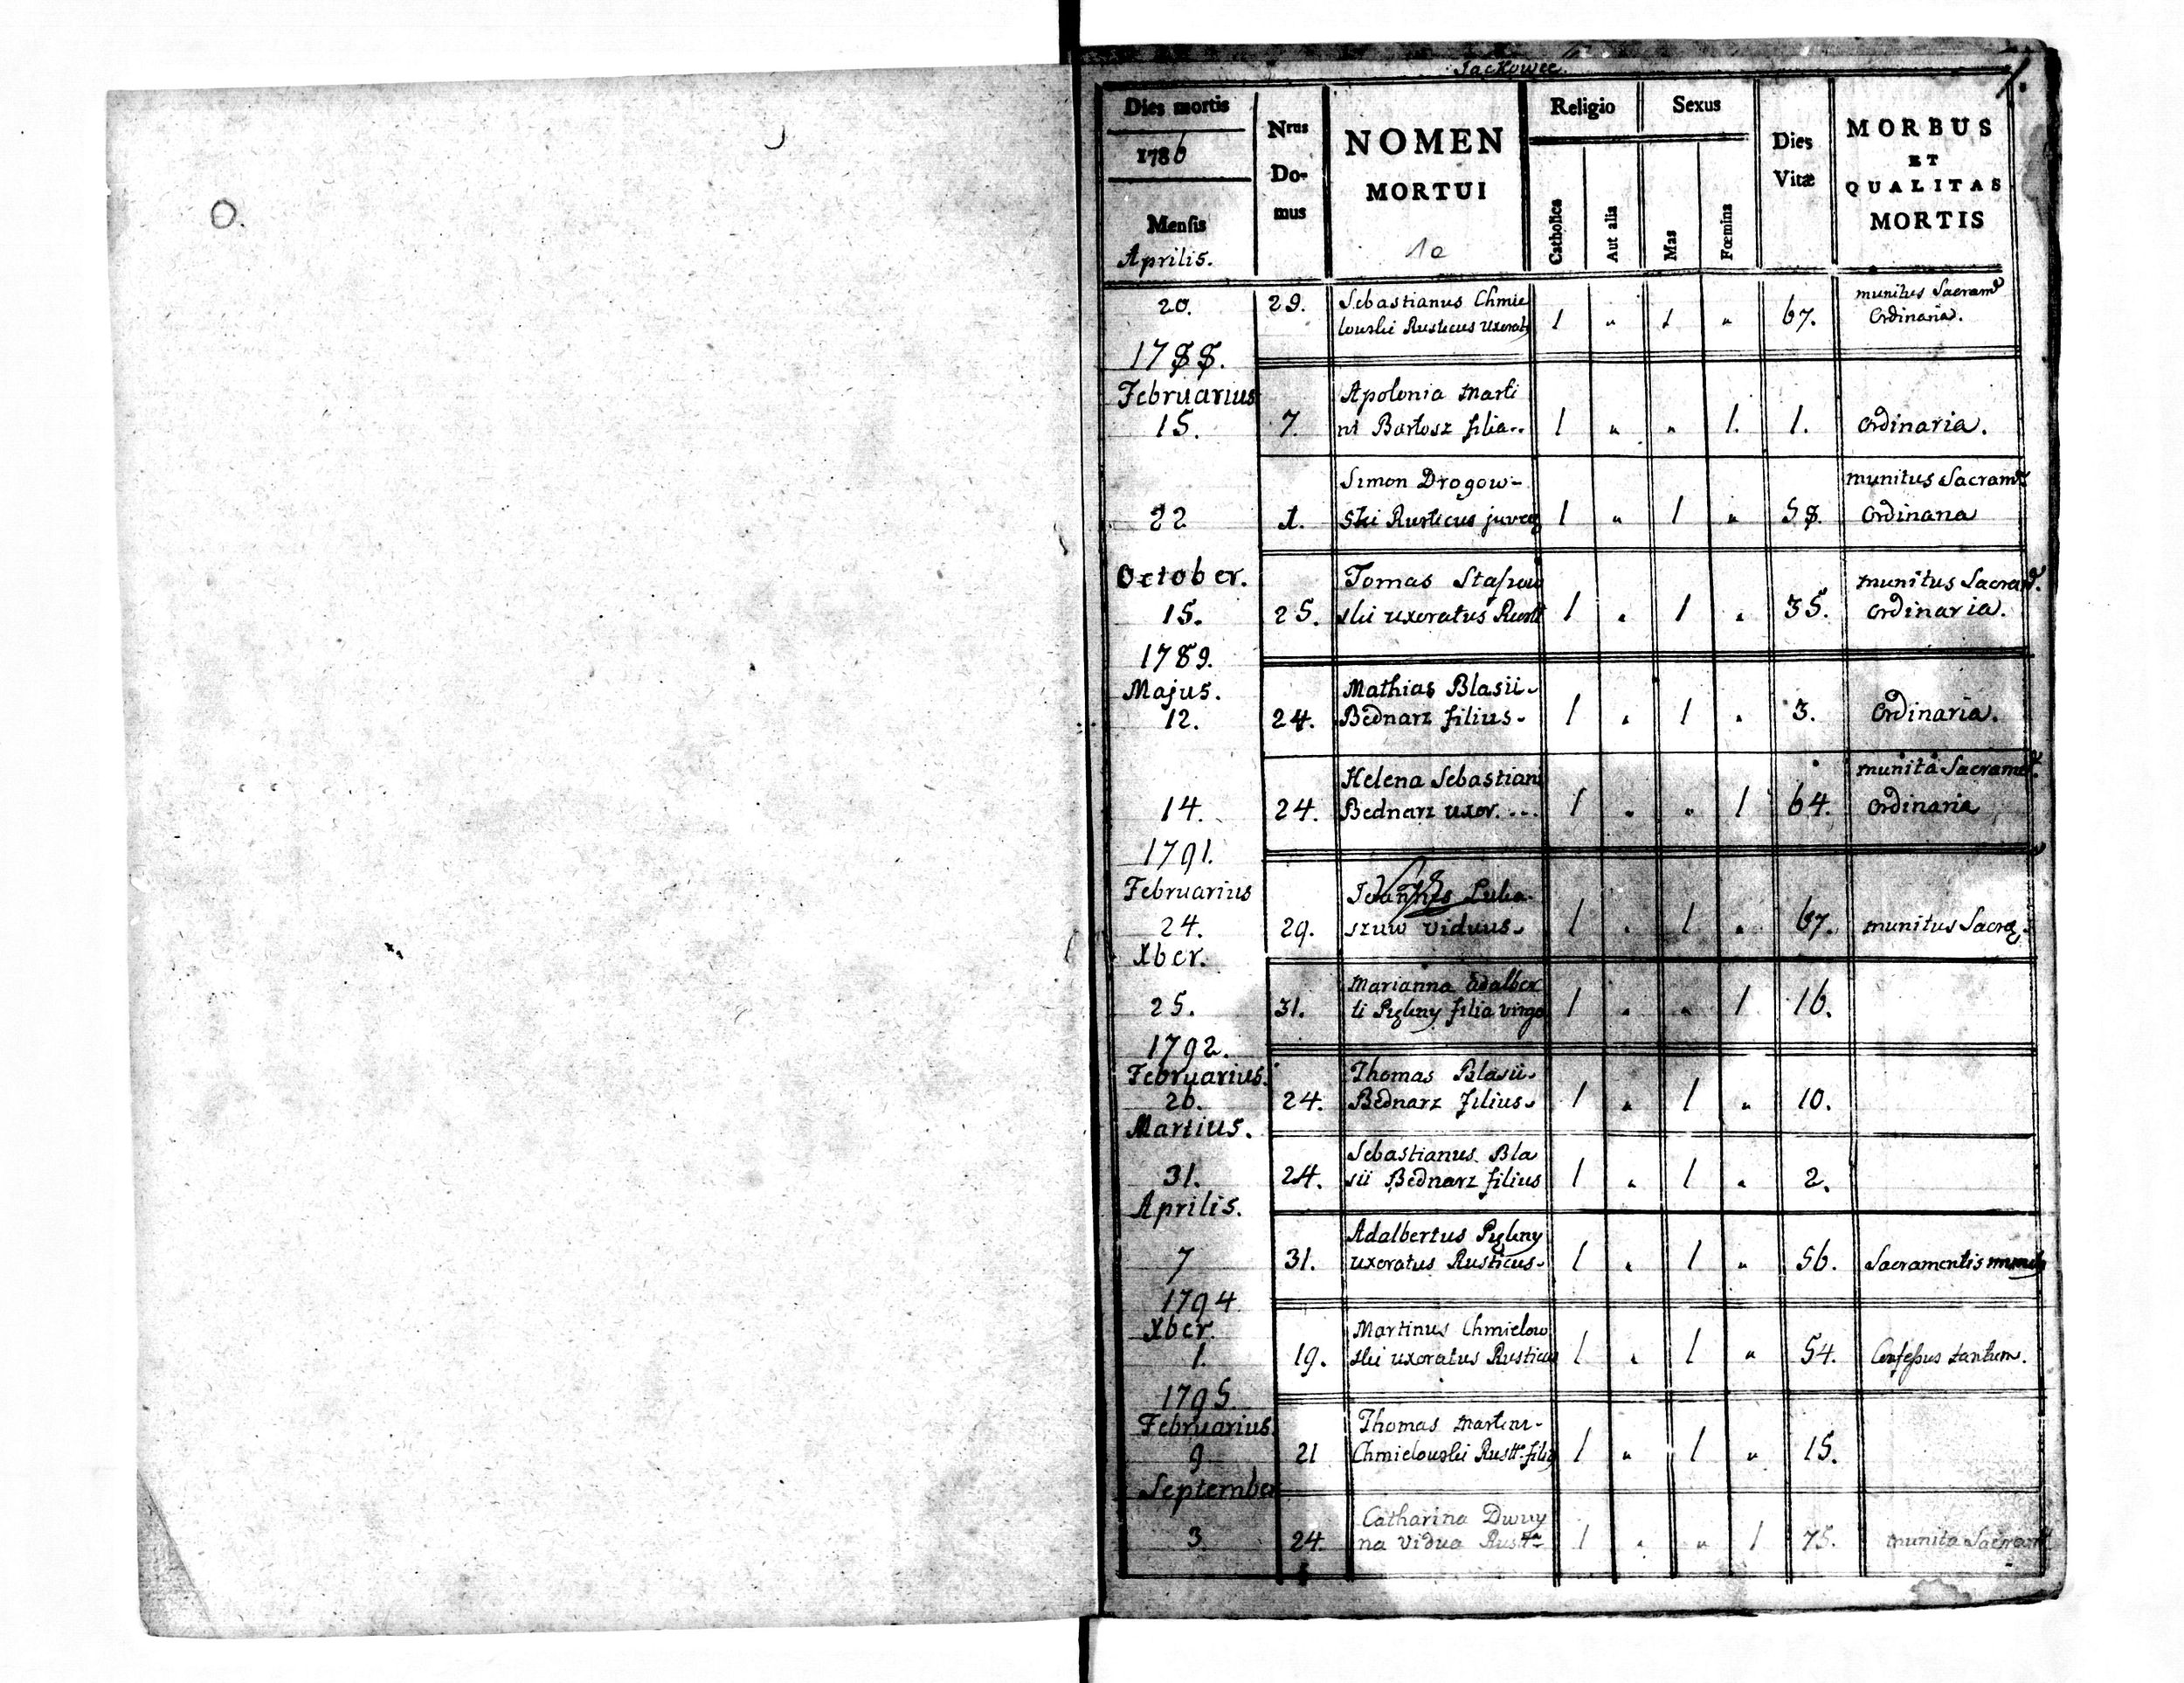 O.
Jackowce.
1.
Dies mortis
1786
Mensis
Aprilis.
Nrus
Do-
mus
NOMEN
MORTUI
10
Religio
Sexus
Catholica
Aut alia
Mas
Fœmina
Dies
Vitæ
MORBUS
ET
QUALITAS
MORTIS
20. 29. Sebastianus Chmie munitus Sacramt
lowski Rusticus Uxorats 1 " 1 " 67. Ordinaria.
1788.
Februarius Apolonia Marti
15. 7. ni Bartosz filia.. 1 " " 1. 1. Ordinaria.
Simon Drogow- munitus Sacramt
22 1. ski Rusticus 1 " 1 " 58. Ordinaria
October. Tomas munitus
15. 25. ski uxoratus Rustt 1 " 1 " 35. Ordinaria.
1789.
Majus. Mathias Blasii-
12. 24. Bednarz filius- 1 " 1 " 3. Ordinaria.
Helena Sebastiani munita Sacramt.
14. 24. Bednarz uxor. ... 1 " " 1 64. Ordinaria
1791.
Februarius Joannes Luka-
24. 29. szuw viduus. 1 " 1 " 67. munitus
Xber. Marianna Adalber
25. 31. ti filia virgo 1 " " 1 16.
1792.
Februarius. Thomas Blasii-
26. 24. Bednarz filius. 1 " 1 " 10.
Martius. Sebastianus Bla
31. 24. sii Bednarz filius 1 " 1 " 2.
Aprilis. Adalbertus
7 31. uxoratus Rusticus- 1 " 1 " 56. Sacramentis
1794
Xber. Martinus Chmielow
1. 19. ski uxoratus Rusticus 1 " 1 " 54. Confessus tantum.
1795.
Februarius Thomas Martini-
9 21 Chmielowski Rustt. 1 " 1 " 15.
September Catharina
3 24. na vidua 1 " " 1 75. munita Sacramt